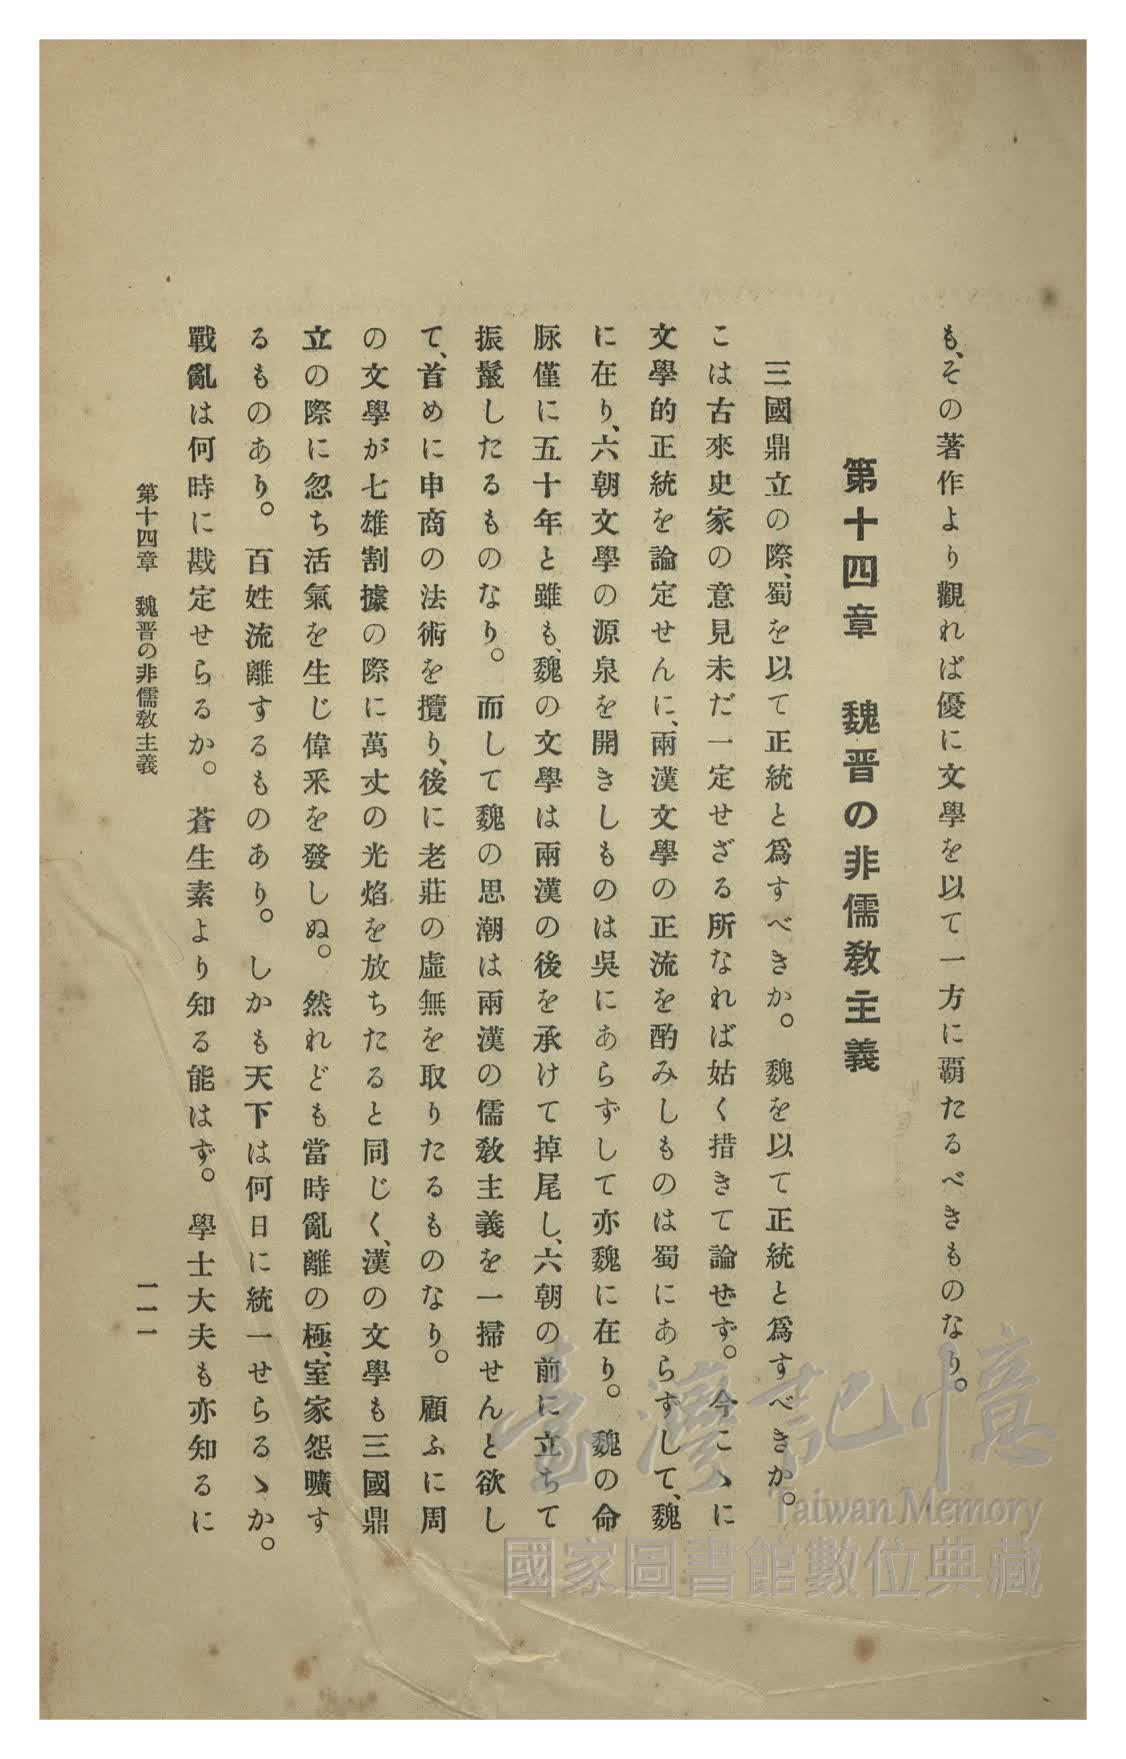 も、その著作より觀れば優に文學を以て一方に覇たるべきものなり。
第十四章　魏晋の非儒敎主義
三國鼎立の際、蜀を以て正統と爲すべきか。魏を以て正統と爲すべきか。
こは古來史家の意見未だ一定せざる所なれば姑く措きて論ぜず。今こゝに
文學的正統を論定せんに、兩漢文學の正流を酌みしものは蜀にあらずして、魏
に在り、六朝文學の源泉を開きしものは吳にあらずして亦魏に在り。魏の命
脉僅に五十年と雖も、魏の文學は兩漢の後を承けて掉尾し、六朝の前に立ちて
振鬣したるものなり。而して魏の思潮は兩漢の儒敎主義を一掃せんと欲し
て、首めに申商の法術を攬り、後に老莊の虛無を取りたるものなり。顧ふに周
の文學が七雄割據の際に萬丈の光焰を放ちたると同じく、漢の文學も三國鼎
立の際に忽ち活氣を生じ偉釆を發しぬ。然れども當時亂離の極、室家怨曠す
るものあり。百姓流離するものあり。しかも天下は何日に統一せらるゝか。
戰亂は何時に戡定せらるか。蒼生素より知る能はず。學士大夫も亦知るに
第十四章　魏晋の非儒敎主義
一一一
臺灣記憶
Taiwan Memory
國家圖書館數位典藏